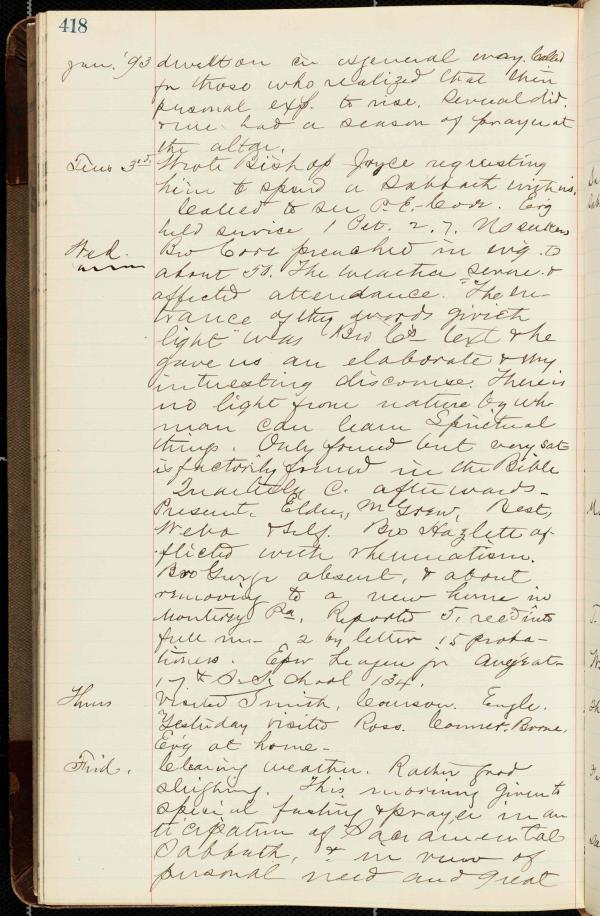 418
Jan. '93 dwelt on in a general way. Called
for those who realized that their
personal exp. to rise. Several did.
& we had a season of prayer at
the altar.
Tues 3rd. Wrote Bishop Joyce requesting
him to spend a Sabbath with us.
Called to see P. E. - Coor. Ev'g
held service 1 Pet. 2, 7. No seekers
Wed. Bro Coor preached in ev'g. to
about 50. The weather severe &
affected attendance. "The en-
trance of thy words giveth
light" was Bro C's text & he
gave us an elaborate & very
interesting discourse. There is
no light from nature by wh
man can learn Spiritual
things. Only found but very sat-
isfactorily found in the Bible
Quarterly C. afterwards -
Present. Elder, McGrew, Best,
& Self. Bro Hazlett af-
flicted with rheumatism.
Bro absent, & about
removing to a new home in
Monterey Pa. Reported 5, rec'd into
full m - 2 by letter 15 proba-
tioners. Epw League for
17 & S. School 134.
Thurs Visited Smith, Courson. Engle.
Yesterday visited Ross. Conner - Boone.
Ev'g at home -
Frid. Clearing weather. Rather good
sleighing. This morning given to
special fasting & prayer in an
ticipation of Sacramental
Sabbath, & in view of
personal need and great